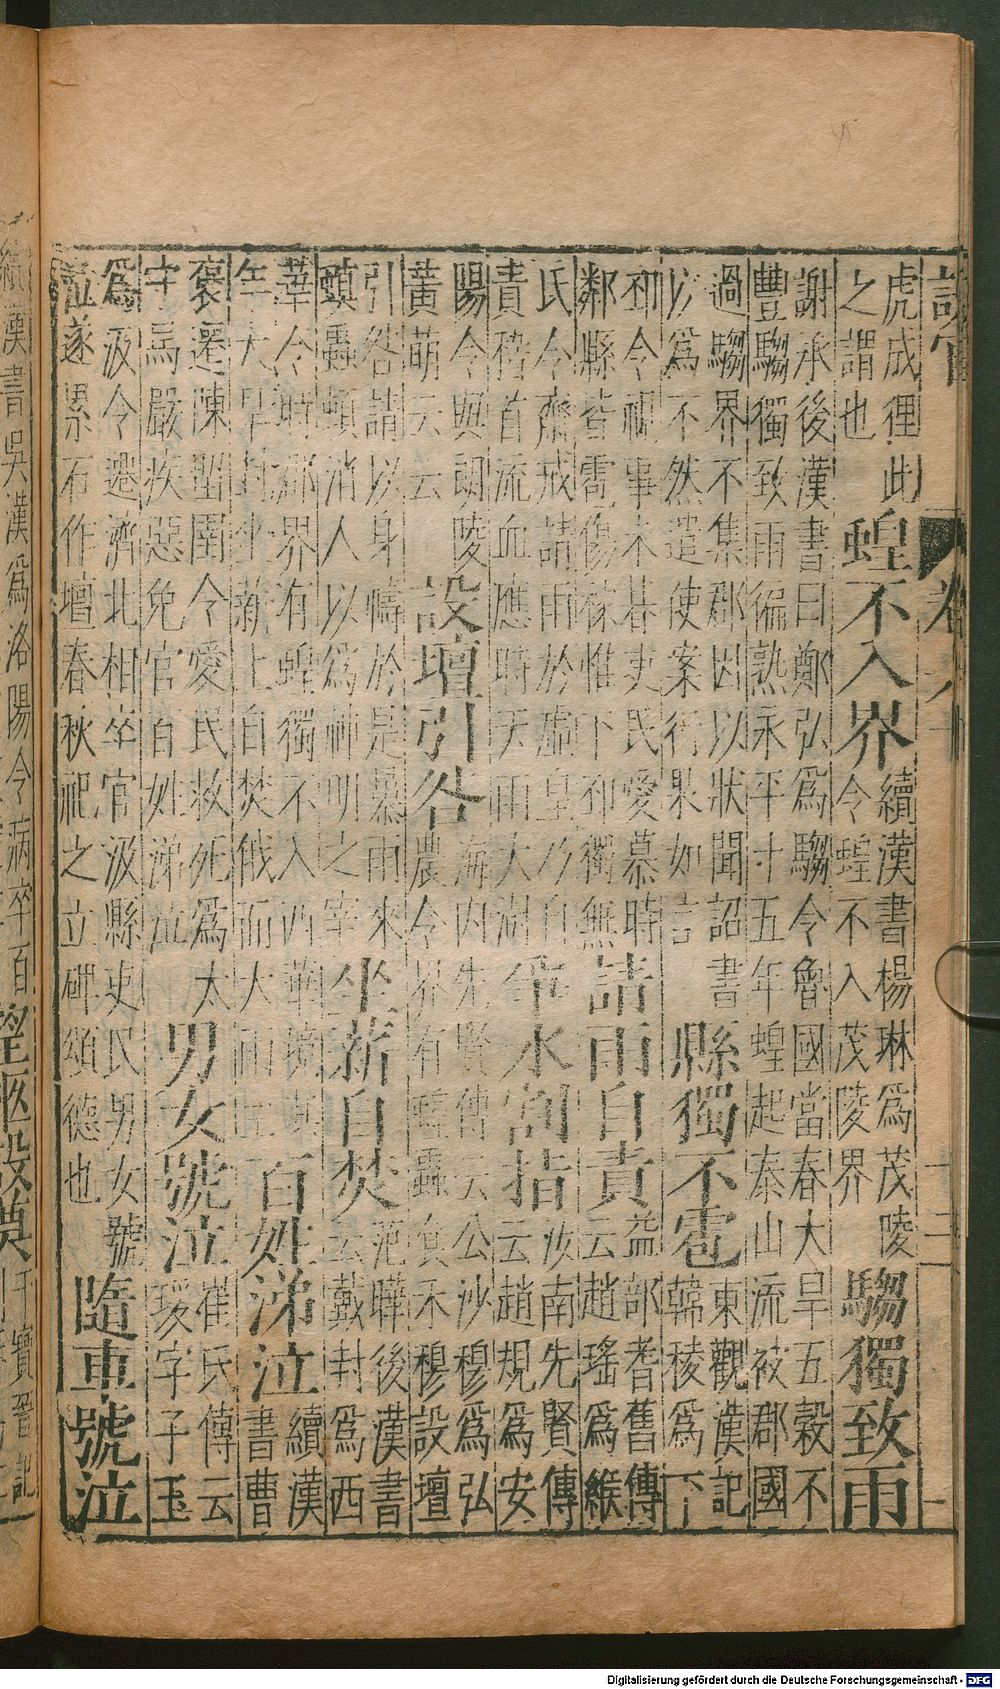 卷八
二
虎成狸此
之謂也
蝗不入界
續漢書楊琳為茂陵
令蝗不入茂陵界
騶獨致雨
謝承後漢書曰鄭弘為騶令魯國當春大旱五穀不
豐騶獨致雨徧熟永平十五年蝗起泰山流被郡國
過騶界不集郡因以狀聞詔書
以為不然遣使案行果如言
縣獨不雹
東觀漢記
韓稜為下
邳令視事未朞吏民愛慕時
鄰縣皆雹傷稼惟下邳獨無
請雨自責
益部耆舊傳
云趙瑤為緱
氏令齋戒請雨於虛皇乃自
責稽首流血應時天雨大澍
爭水割指
汝南先賢傳
云趙規為安
陽令與朗陵
黃萌云云
設壇引咎
海內先賢傳云公沙穆為弘
農令界有螟蟲食禾穆設壇
引咎請以身禱於是暴雨來
螟蟲頓消人以為神明之宰
坐薪自焚
范曄後漢書
云戴封為西
華令時鄰界有蝗獨不入西華境其
年大旱封坐薪上自焚俄而大雨
百姓涕泣
續漢
書曹
褒遷陳留圉令愛民救死為太
守馬嚴疾惡免官百姓涕泣
男女號泣
崔氏傳云
瑗字子玉
為汲令遷濟北相卒官汲縣吏民男女號
泣遂累石作壇春秋祀之立碑頌德也
隨車號泣
續漢書吳漢為洛陽令病卒百
望柩設奠
干寶晉記
Digitalisierung gefördert durch die Deutsche Forschungsgemeinschaft - DFG